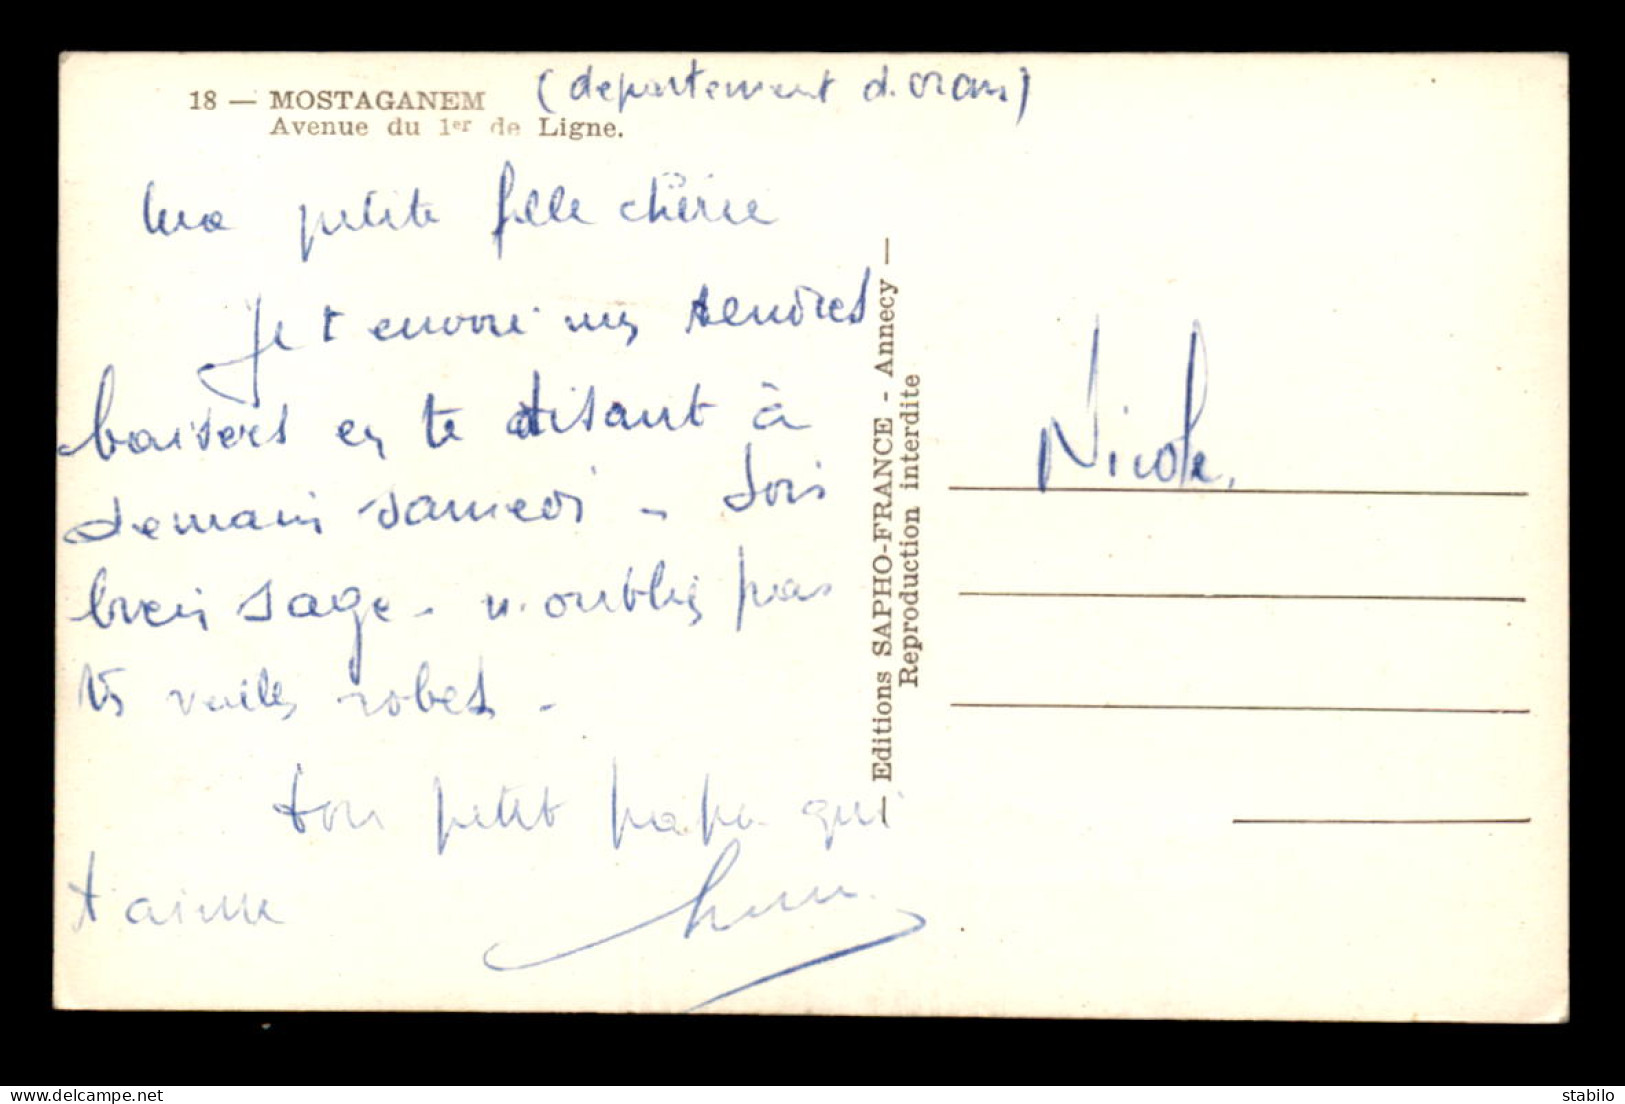 18 — MOSTAGANEM (departement d'oran)
Avenue du 1er de Ligne.
Ma petite fille chérie
Je t'envoie mes tendres
baisers en te disant à
demain samedi - Sois
bien sage - n'oublies pas
tes vieilles robes -
ton petit papa qui
t'aime
— Editions SAPHO-FRANCE - Annecy —
Reproduction interdite
Nicole.
delcampe.net
stabilo